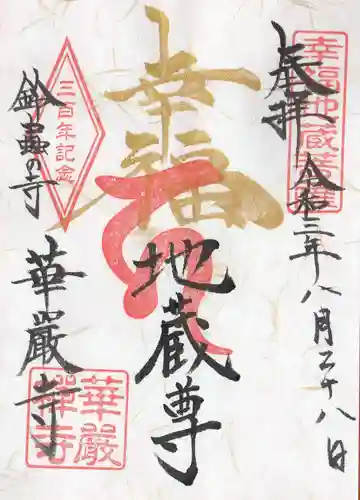 奉拝
令和三年八月二十八日
幸福地蔵菩薩
幸福
地蔵尊
三百年記念
鈴蟲の寺
華嚴寺
華嚴
禪寺